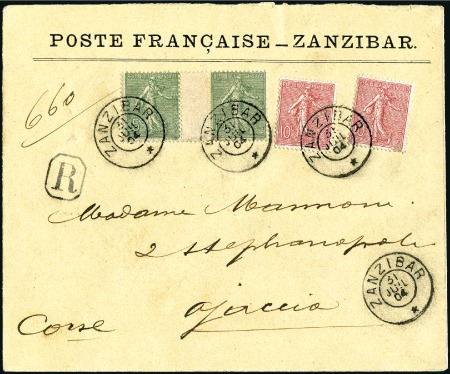 POSTE FRANÇAISE _ ZANZIBAR.
660
10
ZANZIBAR
31
JUIL
04
ZANZIBAR
31
JUIL
04
ZANZIBAR
31
JUIL
04
R
Madame Mannoni
2 Stephanopoli
Ajaccio
Corse
ZANZIBAR
31
JUIL
04